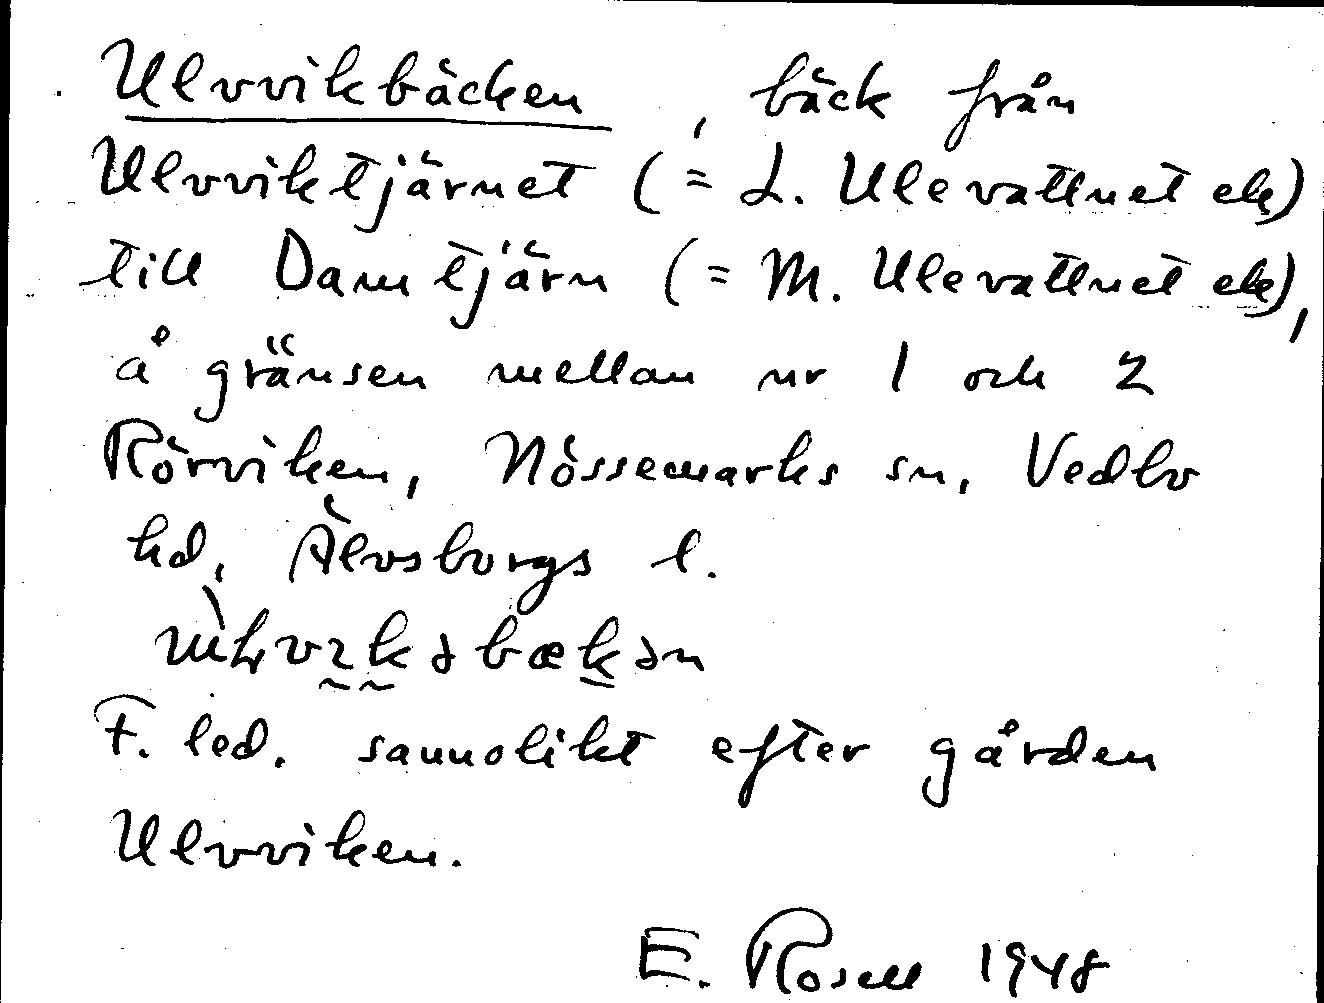 Ulvvikbäcken, bäck från
Ulvviktjärnet (= L. Ulevattnet ek)
till Damtjärn (= M. Ulevattnet ek),
å gränsen mellan nr 1 och 2
Rörviken, Nössemarks sn, Vedbo
hd, Älvsborgs l.
F. led. sannolikt efter gården
Ulvviken.
E. Rosell 1948